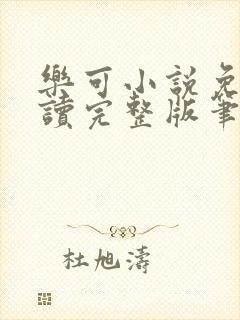 樂可小說免
讀完整版筆
杜旭濤